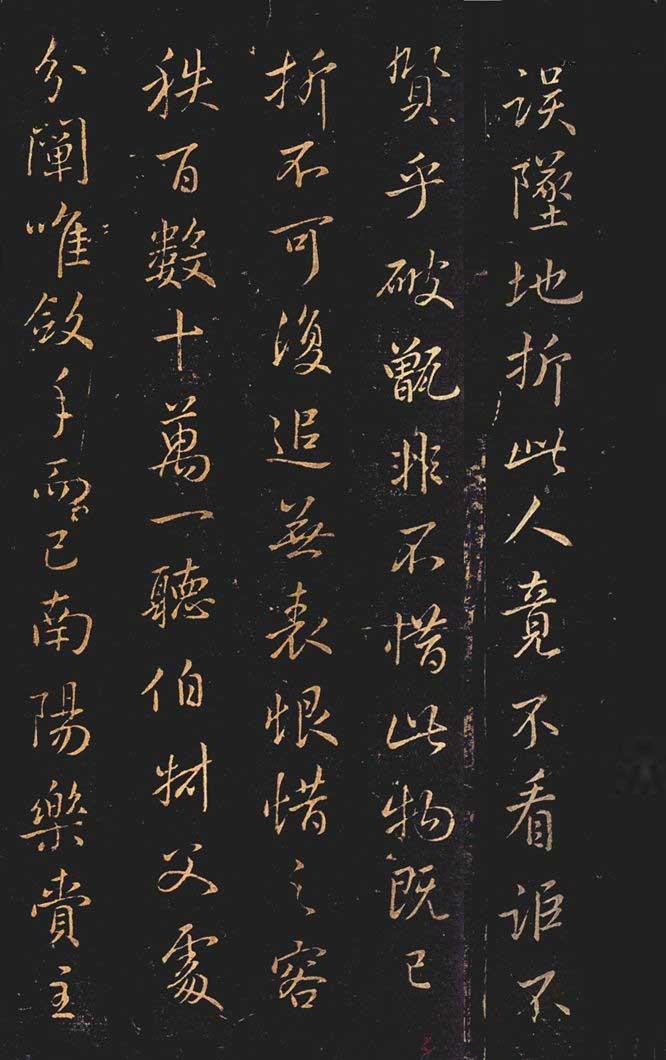 誤墜地折此人竟不看詎不
賢乎破甑非不惜此物既已
折不可復追無表恨惜之容
秩百數十萬一聽伯叔父處
分闡唯斂手而已南陽樂賞主